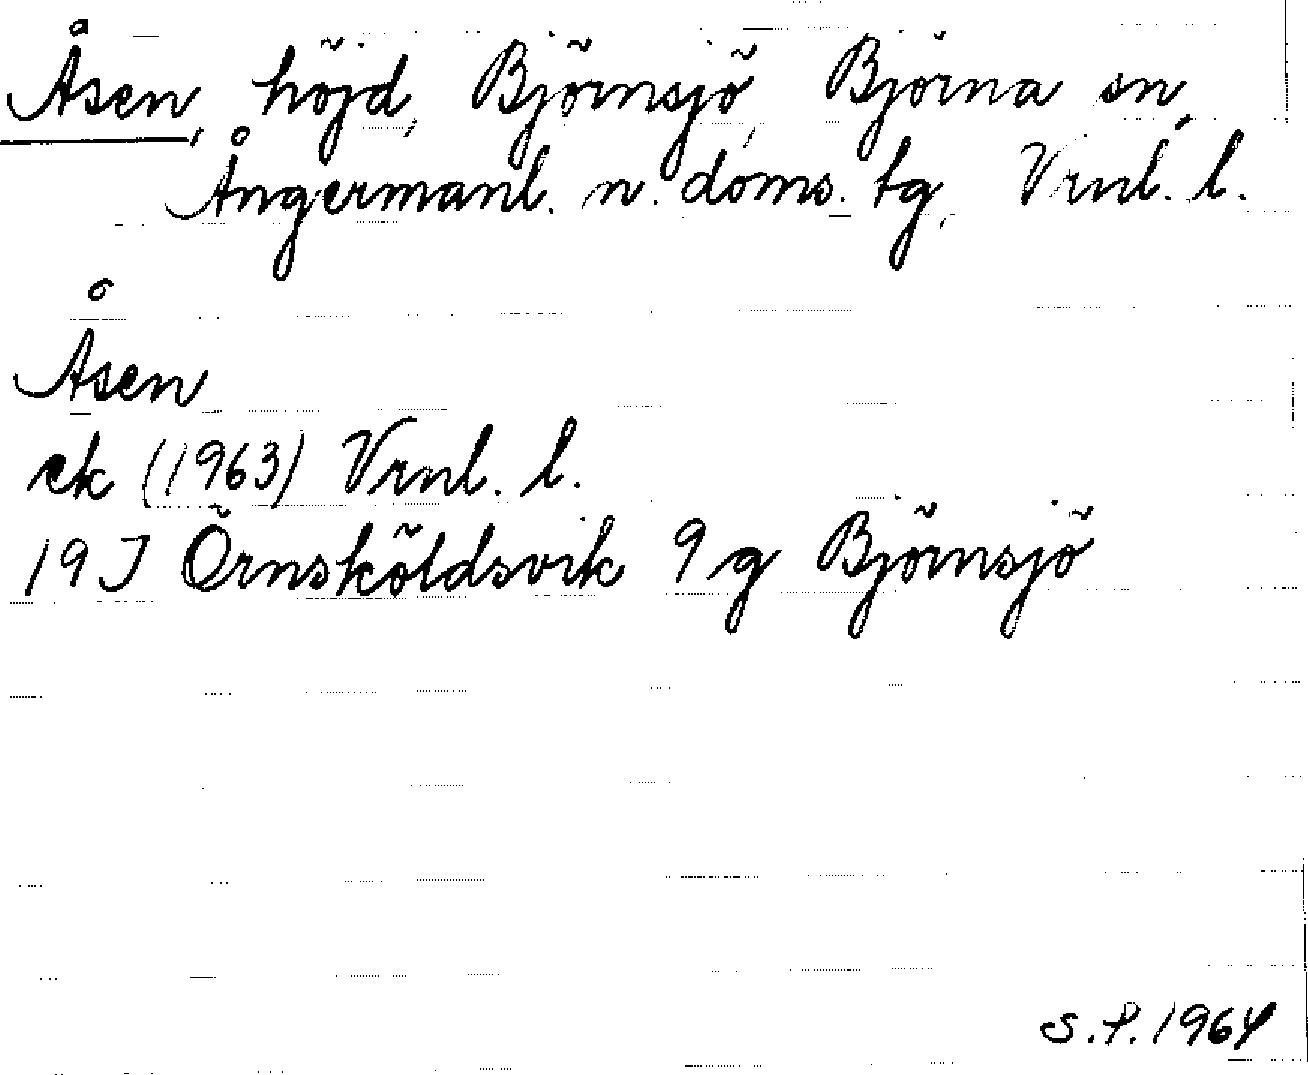 Åsen, höjd, Björnsjö, Björna sn,
Ångermanl. n. doms. tg, Vrnl. l.
Åsen
ek (1963) Vrnl. l.
19 J Örnsköldsvik 9 g Björnsjö
S.P. 1964